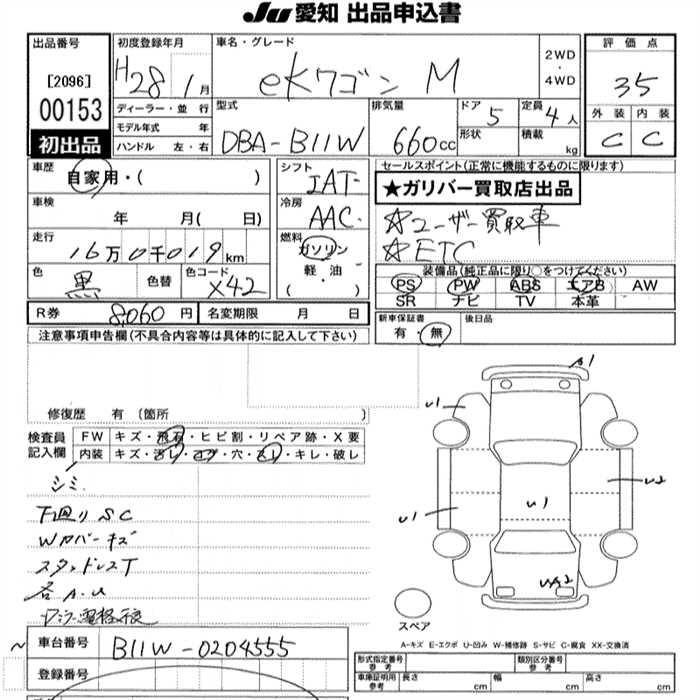 JU 愛知 出品申込書
出品番号
[2096]
00153
初出品
初度登録年月
H28 1月
ディーラー・並行
モデル年式 年
ハンドル 左・右
車名・グレード
eKワゴン M
2WD
・
4WD
型式
DBA-B11W
排気量
660cc
ドア
5
定員
4人
形状
積載
kg
評価点
3.5
外装
内装
C
C
車歴
自家用・( )
車検
年 月( 日)
走行
16万0千019km
色
黒
色替
色コード
X42
シフト
IAT
冷房
AAC
燃料
ガソリン
軽・油
( ・ )
セールスポイント(正常に機能するものに限ります)
★ガリバー買取店出品
☆ユーザー買取車
☆ETC
装備品(純正品に限り○をつけてください)
PS PW ABS エアB AW
SR ナビ TV 本革
新車保証書
有・無
後日品
R券 8,060円
名変期限 月 日
注意事項申告欄(不具合内容等は具体的に記入して下さい)
修復歴 有 (箇所 )
検査員
記入欄
FW キズ・飛石・ヒビ割・リペア跡・X要
内装 キズ・汚レ・コゲ・穴・スレ・キレ・破レ
シミ
下廻りSC
Wカバーキズ
スタッドレスT
各A.U
A1
U1
U1
U1
U2
UA2
スペア
A-キズ E-エクボ U-凹み W-補修跡 S-サビ C-腐食 XX-交換済
車台番号
B11W-0204555
登録番号
型式指定番号
参考
類別区分番号
参考
車庫証明用
参考
長さ cm
幅 cm
高さ cm